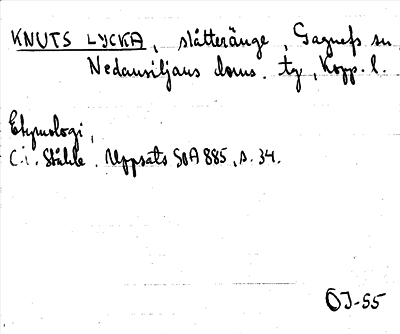 KNUTS LYCKA, slåtteränge, Gagnefs sn
Nedansiljans doms. tg, Kopp. l.
Etymologi,
C.i. Ståhle. Uppsats SOA 885, s. 34.
ÖJ-55